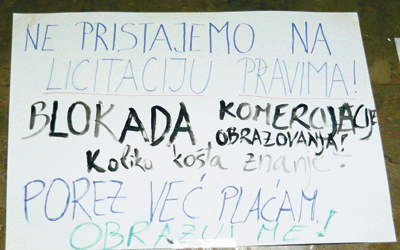 NE PRISTAJEMO NA
LICITACIJU PRAVIMA!
BLOKADA KOMERCIJACIJE
OBRAZOVANJA!
Koliko košta znanje?
POREZ VEĆ PLAĆAM,
OBRAZUJ ME!